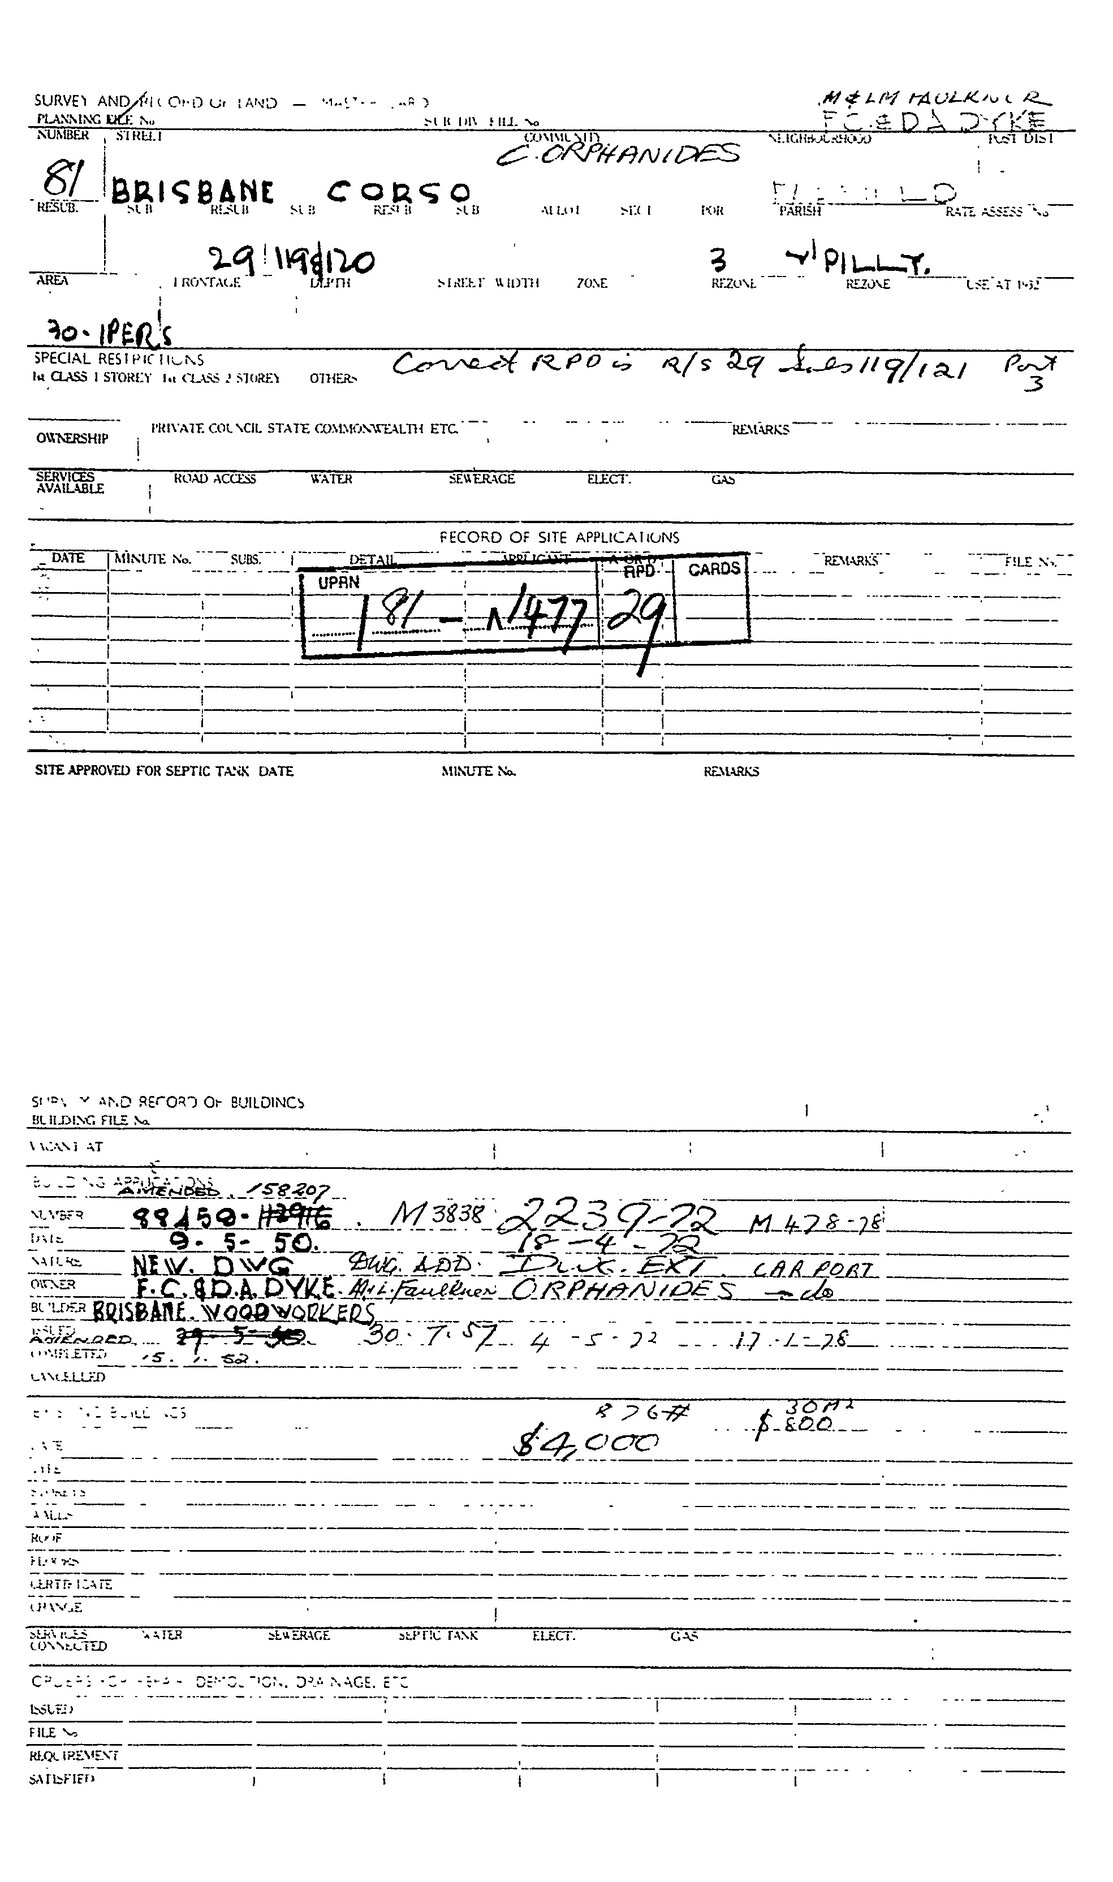 SURVEY AND RECORD OF LAND — MASTER CARD
M & LM FAULKNER
PLANNING FILE No SUB DIV FILE No F.C. & D A DYKE
NUMBER STREET COMMUNITY NEIGHBOURHOOD POST DIST
C. ORPHANIDES
81 BRISBANE CORSO
RESUB. SUB RESUB SUB RESUB SUB ALLOT SECT POR PARISH RATE ASSESS No
29 119&120 3 Y'PILLY.
AREA FRONTAGE DEPTH STREET WIDTH ZONE REZONE REZONE USE AT 1952
30. 1PERS
SPECIAL RESTRICTIONS Correct RPD is R/S 29 Subs 119/121 Port 3
1st CLASS 1 STOREY 1st CLASS 2 STOREY OTHERS
OWNERSHIP PRIVATE COUNCIL STATE COMMONWEALTH ETC. REMARKS
SERVICES AVAILABLE ROAD ACCESS WATER SEWERAGE ELECT. GAS
RECORD OF SITE APPLICATIONS
DATE MINUTE No. SUBS. DETAIL APPLICANT A OR D REMARKS FILE No.
UPRN RPD CARDS
1 81 – N1477 29
SITE APPROVED FOR SEPTIC TANK DATE MINUTE No. REMARKS
SURVEY AND RECORD OF BUILDINGS
BUILDING FILE No.
VACANT AT
BUILDING APPLICATIONS
AMENDED 158207
NUMBER 88450- M3838 2239-72 M478-78
DATE 9-5-50. 18-4-72
NATURE NEW. DWG DWG. ADD. DWG. EXT CARPORT
OWNER F.C. & D.A. DYKE. M.L. Faulkner ORPHANIDES — do
BUILDER BRISBANE. WOODWORKERS
ISSUED 29-5-50. 30.7.57 4-5-72 17-1-78
AMENDED
COMPLETED 15. 1. 52.
CANCELLED
EXISTING BUILDINGS 876# 30M2
DATE $4,000 $800
TYPE
STOREYS
WALLS
ROOF
FLOORS
CERTIFICATE
CHANGE
SERVICES CONNECTED WATER SEWERAGE SEPTIC TANK ELECT. GAS
ORDERS FOR REPAIR DEMOLITION, DRAINAGE, ETC
ISSUED
FILE No
REQUIREMENT
SATISFIED